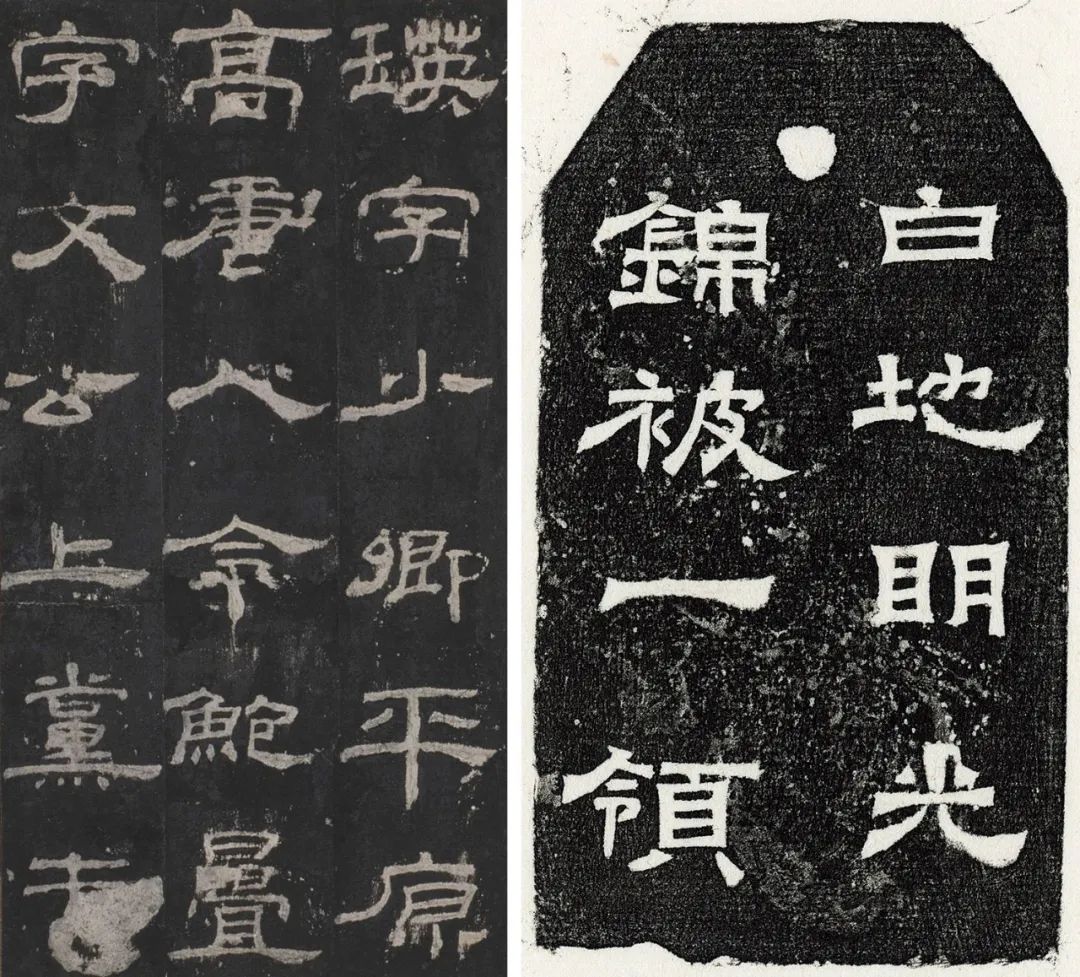 瑛字少卿平原
高唐人令鮑疊
字文公上黨屯
白地明光
錦被一領